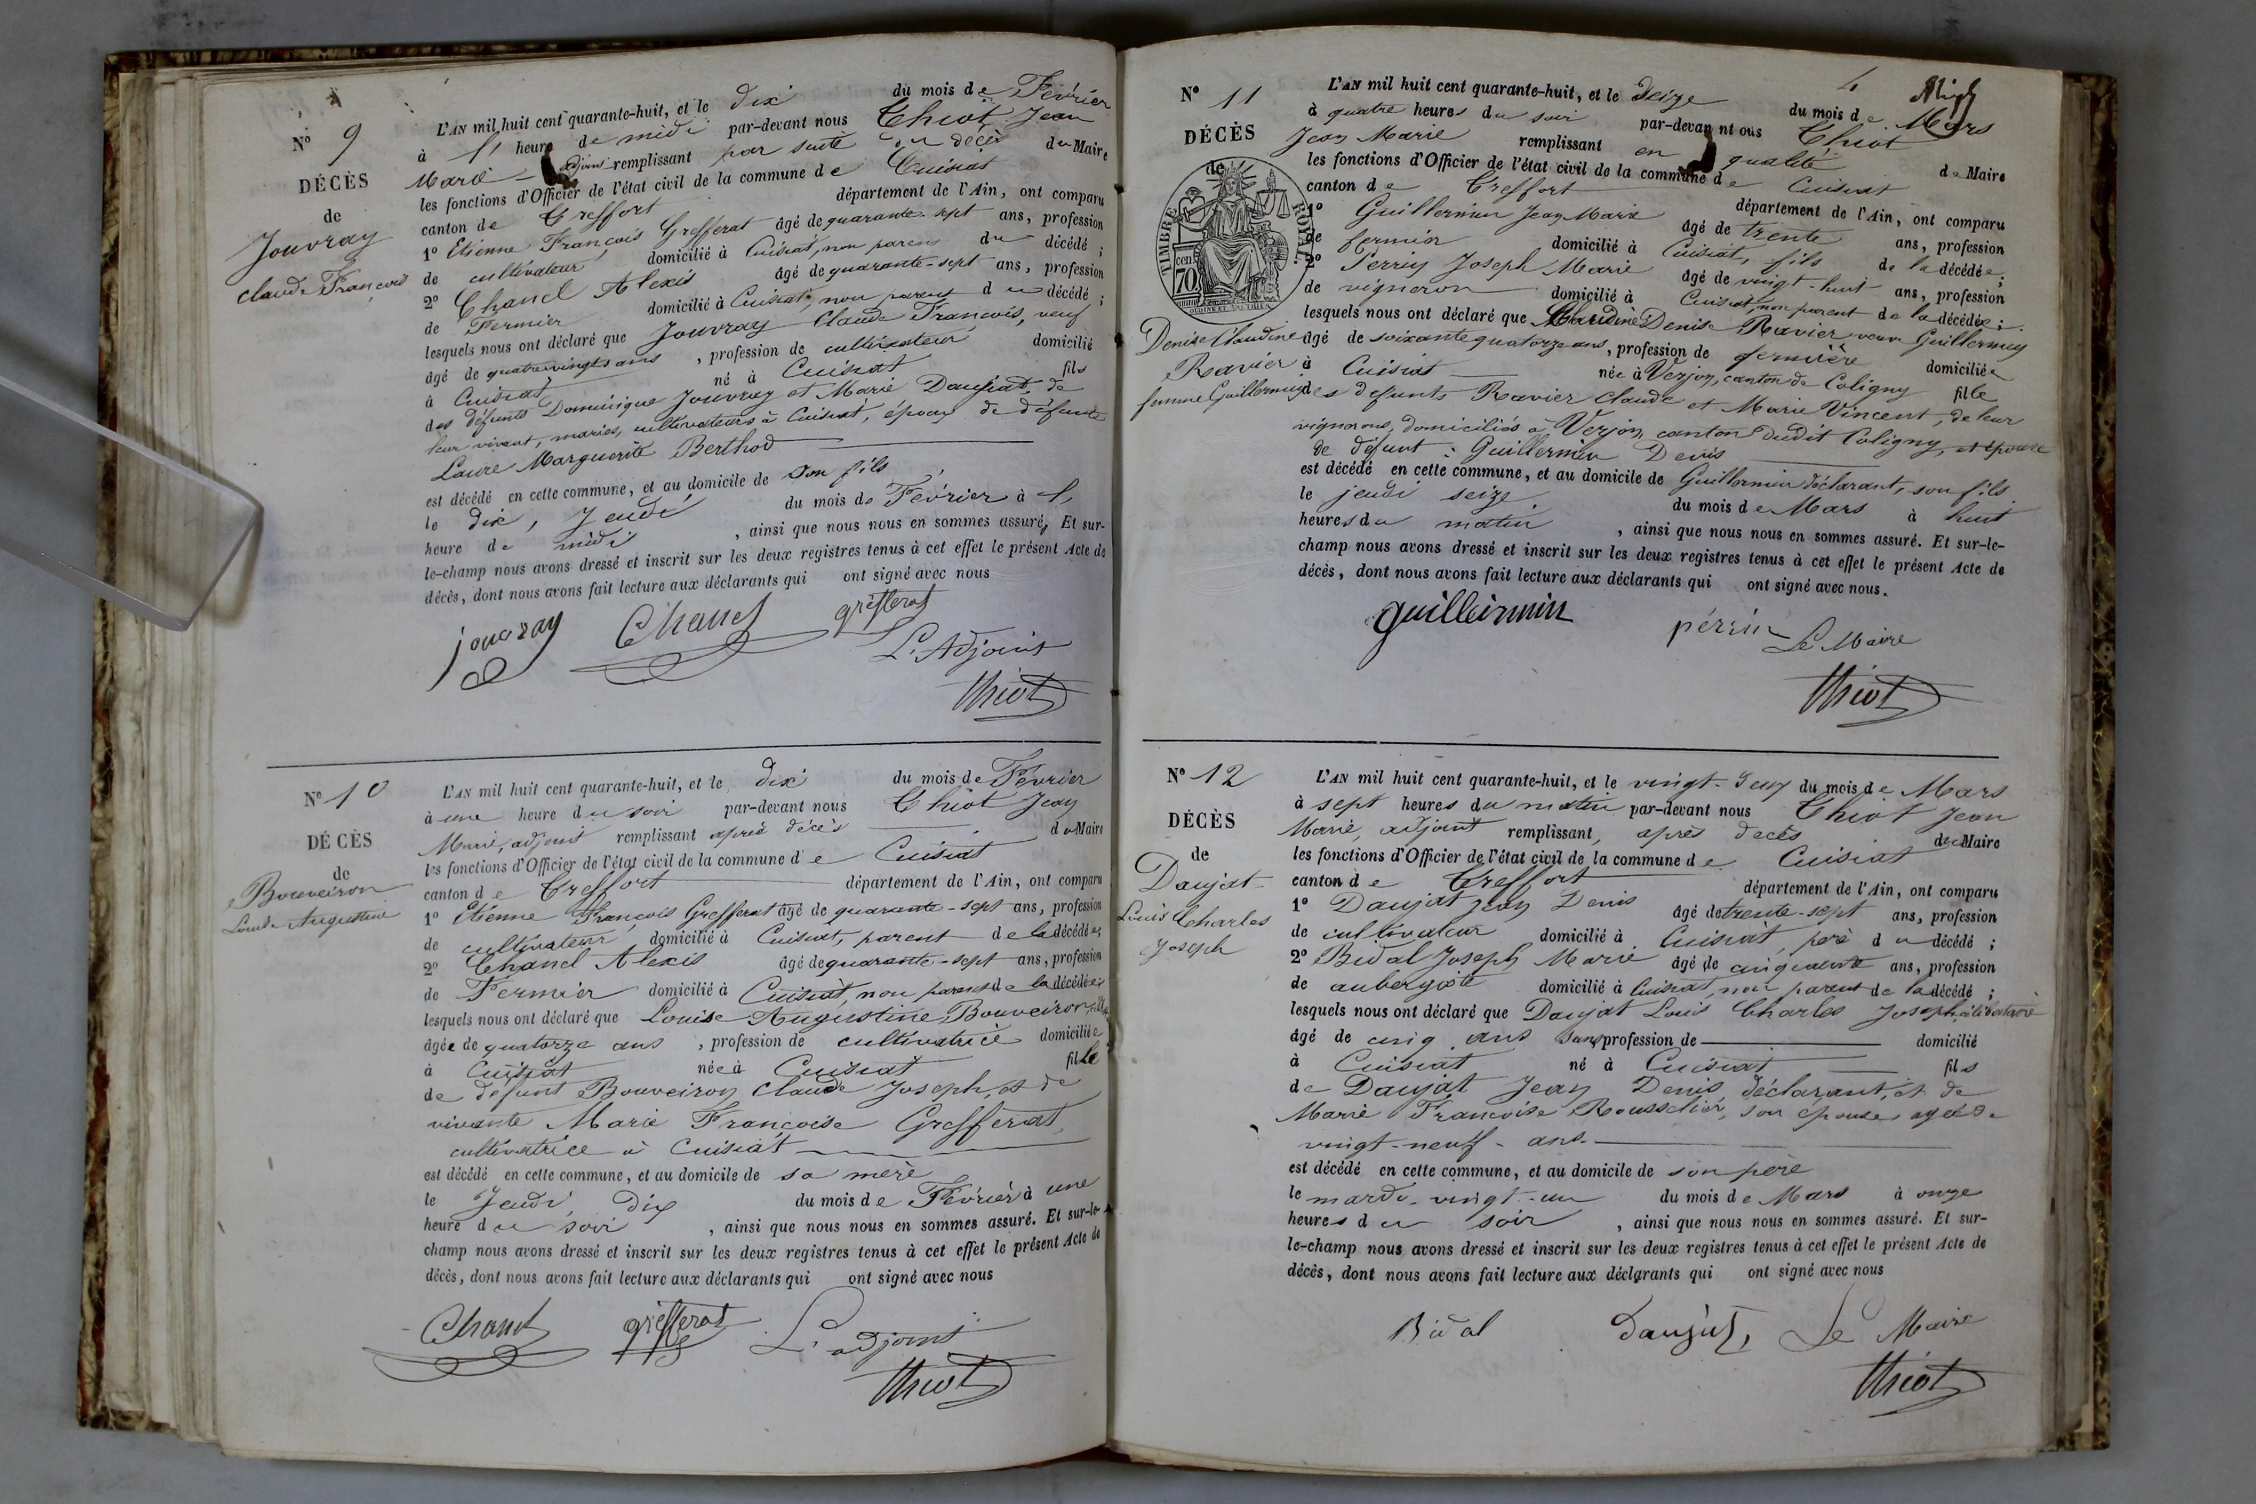 N° 9
DÉCÈS
de
Jouvray
Claude François
L'AN mil huit cent quarante-huit, et le dix du mois de Février
à l' heure de midi par-devant nous Thiot Jean
Marie adjoint remplissant par suite du décès du Maire
les fonctions d'Officier de l'état civil de la commune de Cuisiat
canton de Treffort département de l'Ain, ont comparu
1° Etienne François Grefferat âgé de quarante-sept ans, profession
de cultivateur domicilié à Cuisiat, non parens du décédé ;
2° Chanel Alexis âgé de quarante-sept ans, profession
de Fermier domicilié à Cuisiat, non parent du décédé ;
lesquels nous ont déclaré que Jouvray Claude François, veuf
âgé de quatrevingts ans , profession de cultivateur domicilié
à Cuisiat né à Cuisiat fils
des défunts Dominique Jouvray et Marie Daujat de
leur vivant, mariés, cultivateurs à Cuisiat, époux de défunte
Laure Marguerite Berthod
est décédé en cette commune, et au domicile de son fils
le dix, Jeudi du mois de Février à l'
heure de midi , ainsi que nous nous en sommes assuré, Et sur-
le-champ nous avons dressé et inscrit sur les deux registres tenus à cet effet le présent Acte de
décès, dont nous avons fait lecture aux déclarants qui ont signé avec nous
jouvray Chanel grefferat
L'Adjoint
Thiot
N° 10
DÉCÈS
de
Bouveiron
Louise Augustine
L'AN mil huit cent quarante-huit, et le dix du mois de Février
à une heure du soir par-devant nous Thiot Jean
Marie, adjoint remplissant après décès du Maire
les fonctions d'Officier de l'état civil de la commune de Cuisiat
canton de Treffort département de l'Ain, ont comparu
1° Etienne François Grefferat âgé de quarante-sept ans, profession
de cultivateur domicilié à Cuisiat, parent de la décédée ;
2° Chanel Alexis âgé de quarante-sept ans, profession
de Fermier domicilié à Cuisiat, non parent de la décédée ;
lesquels nous ont déclaré que Louise Augustine Bouveiron
âgée de quatorze ans , profession de cultivatrice domiciliée
à Cuisiat née à Cuisiat fille
de défunt Bouveiron Claude Joseph, et de
vivante Marie Françoise Grefferat,
cultivatrice à Cuisiat
est décédé en cette commune, et au domicile de sa mère
le Jeudi, dix du mois de Février à une
heure du soir , ainsi que nous nous en sommes assuré. Et sur-le-
champ nous avons dressé et inscrit sur les deux registres tenus à cet effet le présent Acte de
décès, dont nous avons fait lecture aux déclarants qui ont signé avec nous
Chanel grefferat L'adjoint
Thiot
4
N° 11
DÉCÈS
de
TIMBRE ROYAL
70 cen
Denise Claudine
Ravier
femme Guillermin
L'AN mil huit cent quarante-huit, et le Seize du mois de Mars
à quatre heures du soir par-devant nous Thiot
Jean Marie remplissant en qualité de Maire
les fonctions d'Officier de l'état civil de la commune de Cuisiat
canton de Treffort département de l'Ain, ont comparu
1° Guillermin Jean Marie âgé de trente ans, profession
de fermier domicilié à Cuisiat, fils de la décédée ;
2° Perrin Joseph Marie âgé de vingt-huit ans, profession
de vigneron domicilié à Cuisiat, non parent de la décédée ;
lesquels nous ont déclaré que Claudine Denise Ravier veuve Guillermin
âgé de soixante quatorze ans , profession de fermière domiciliée
à Cuisiat née à Verjon, canton de Coligny fille
des defunts Ravier Claude et Marie Vincent, de leur
vignerons, domiciliés à Verjon, canton dudit Coligny, et épouse
de défunt : Guillermin Denis
est décédé en cette commune, et au domicile de Guillermin déclarant, son fils
le jeudi seize du mois de Mars à huit
heures du matin , ainsi que nous nous en sommes assuré. Et sur-le-
champ nous avons dressé et inscrit sur les deux registres tenus à cet effet le présent Acte de
décès, dont nous avons fait lecture aux déclarants qui ont signé avec nous.
guillermin perrin Le Maire
Thiot
N° 12
DÉCÈS
de
Daujat
Louis Charles
Joseph
L'AN mil huit cent quarante-huit, et le vingt-deux du mois de Mars
à sept heures du matin par-devant nous Thiot Jean
Marie, adjoint remplissant, après decès du Maire
les fonctions d'Officier de l'état civil de la commune de Cuisiat
canton de Treffort département de l'Ain, ont comparu
1° Daujat Jean Denis âgé de trente-sept ans, profession
de cultivateur domicilié à Cuisiat, père du décédé ;
2° Bidal Joseph Marie âgé de cinquante ans, profession
de aubergiste domicilié à Cuisiat, non parent de la décédé ;
lesquels nous ont déclaré que Daujat Louis Charles Joseph, célibataire
âgé de cinq ans sans profession de domicilié
à Cuisiat né à Cuisiat fils
de Daujat Jean Denis, déclarant, et de
Marie Françoise Rousselier, son épouse, agée de
vingt-neuf ans.
est décédé en cette commune, et au domicile de son père
le mardi vingt-un du mois de Mars à onze
heures du soir , ainsi que nous nous en sommes assuré. Et sur-
le-champ nous avons dressé et inscrit sur les deux registres tenus à cet effet le présent Acte de
décès, dont nous avons fait lecture aux déclarants qui ont signé avec nous
Bidal Daujat, Le Maire
Thiot